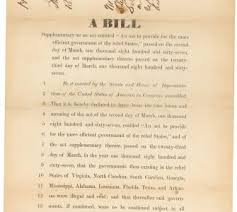 A BILL
Supplementary to an act entitled "An act to provide for the more
efficient government of the rebel States," passed on the second
day of March, one thousand eight hundred and sixty-seven,
and the act supplementary thereto passed on the twenty-
third day of March, one thousand eight hundred and sixty-
seven.
1 Be it enacted by the Senate and House of Representa-
2 tives of the United States of America in Congress assembled,
3 That it is hereby declared to have been the true intent and
4 meaning of the act of the second day of March, one thousand
5 eight hundred and sixty-seven, entitled "An act to provide
6 for the more efficient government of the rebel States," and of
7 the act supplementary thereto, passed on the twenty-third
8 day of March, in the year one thousand eight hundred and
9 sixty-seven, that the governments then existing in the rebel
10 States of Virginia, North Carolina, South Carolina, Georgia,
11 Mississippi, Alabama, Louisiana, Florida, Texas, and Arkan-
12 sas were illegal and void; and that thereafter said govern-
13 ments, if continued, were to be continued subject in all